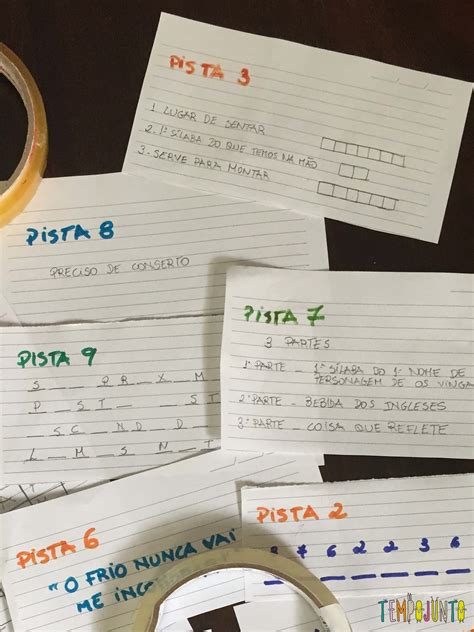 PISTA 3
1 LUGAR DE SENTAR
2. 1ª SÍLABA DO QUE TEMOS NA MÃO
3. SERVE PARA MONTAR
PISTA 8
PRECISO DE CONSERTO
PISTA 7
3 PARTES
1ª PARTE _ 1ª SÍLABA DO 1º NOME DE
PERSONAGEM DE OS VINGA
2ª PARTE _ BEBIDA DOS INGLESES
3ª PARTE _ COISA QUE REFLETE
PISTA 9
S _ _ PR _ X _ M
P _ ST _ _ ST
_ SC _ ND _ D
L _ M _ S _ NT
PISTA 6
"O FRIO NUNCA VAI
ME
PISTA 2
7 6 2 2 3 6
TEMPOJUNTO